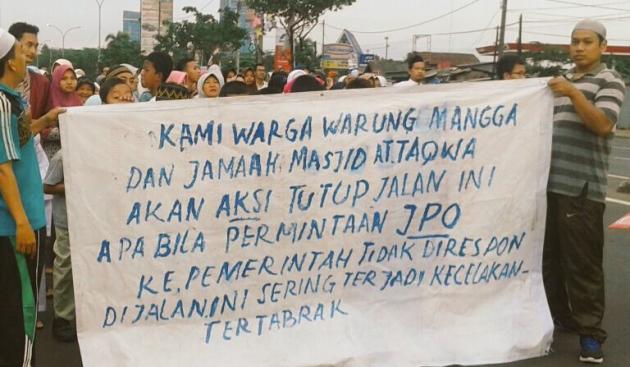 KAMI WARGA WARUNG MANGGA
DAN JAMAAH MASJID ATTAQWA
AKAN AKSI TUTUP JALAN INI
APA BILA PERMINTAAN JPO
KE.PEMERINTAH TIDAK DIRESPON
DIJALAN.INI SERING TERJADI KECELAKAN-
TERTABRAK